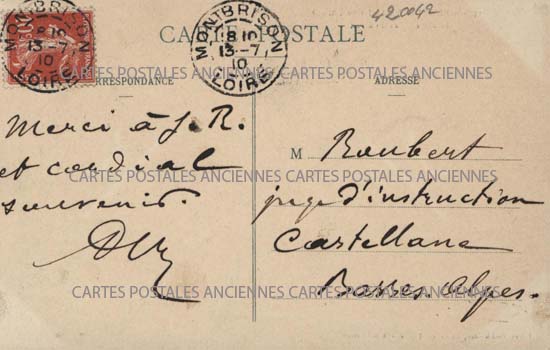 420042
CARTE POSTALE
MONTBRISON
8 10
13-7
10
LOIRE
MONTBRISON
8 10
13-7
10
LOIRE
CARTES POSTALES ANCIENNES CARTES POSTALES ANCIENNES
RRESPONDANCE
ADRESSE
Merci à J. R.
et cordial
souvenir.
M Roubert
juge d'instruction
Castellane
Basses-Alpes.
CARTES POSTALES ANCIENNES CARTES POSTALES ANCIENNES
CARTES POSTALES ANCIENNES CARTES POSTALES ANCIENNES